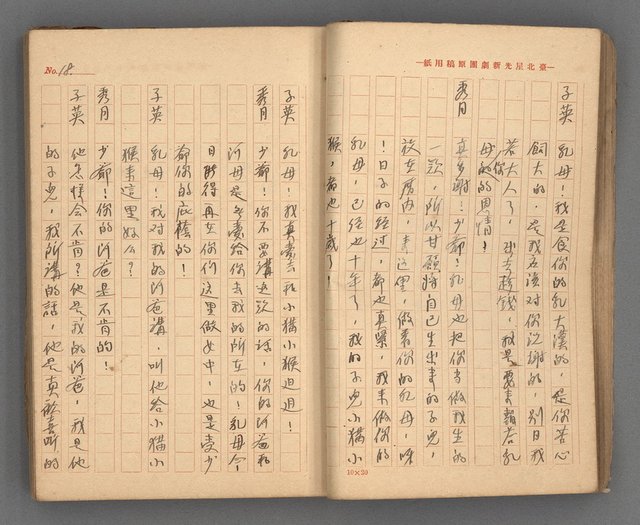 臺北星光新劇團原稿用紙
子英 乳母！我是食你的乳大漢的，是你苦心
飼大的，是我應該對你說謝的，別日我
若大人了，我去趁錢，我是要來報答乳
母你的恩情！
秀月 真多謝！少爺！乳母也把你當做我生的
一欵，所以甘願將自己生出來的子兒，
放在厝內，來這里，做着你的乳母，咳
！日子的經过，都也真緊，我來做你的
乳母，已經也十年了，我的子兒小猫小
猴，都也十歲了！
10×20
No. 18.
子英 乳母！我真愛去和小猫小猴迌迌！
秀月 少爺！你不要講這欵的話，你的阿爸和
阿母是无愛給你去我的所在的！乳母今
日能得再在你们这里做女中，也是愛少
爺你的庇蔭的！
子英 乳母！我对我的阿爸講，叫他给小猫小
猴來這里好么？
秀月 少爺！你的阿爸是不肯的！
子英 他怎樣会不肯？他是我的阿爸，我是他
的子兒，我所講的話，他是真歡喜听的